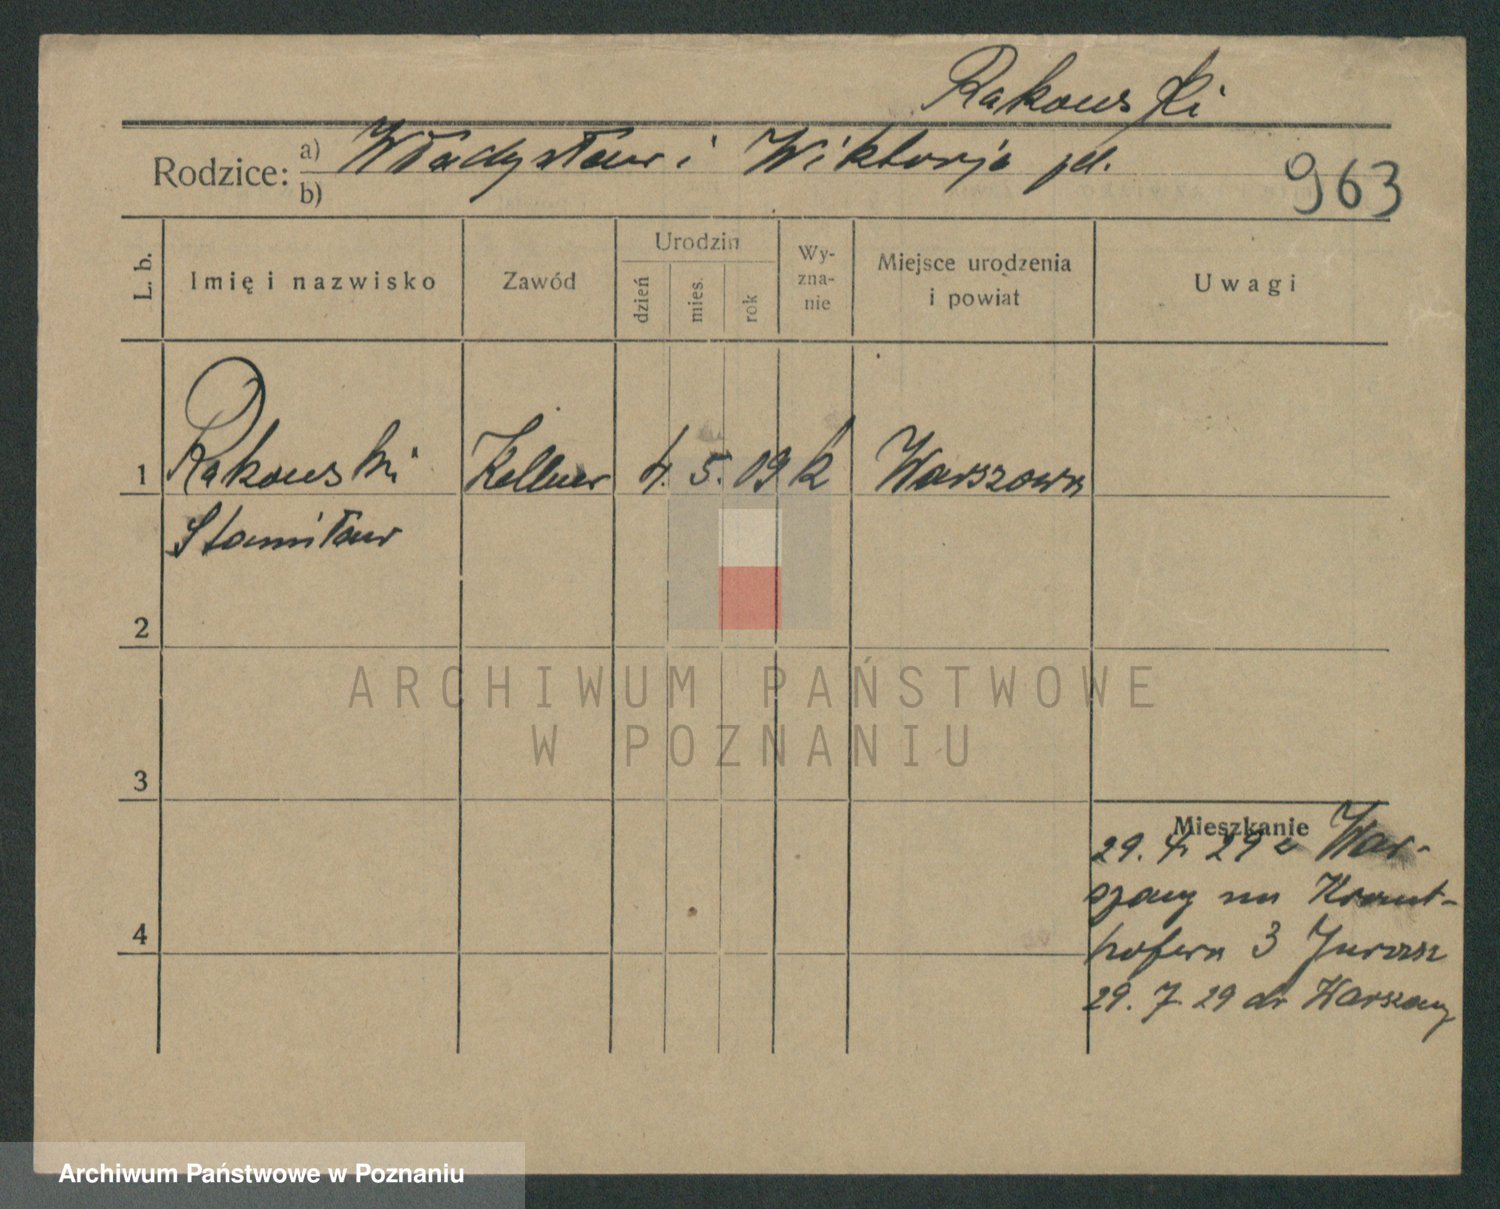 Rakowski
Rodzice:
a) Władysław i Wiktorja pd.
b)
963
L. b.
Imię i nazwisko
Zawód
Urodzin
dzień
mies.
rok
Wy-
zna-
nie
Miejsce urodzenia
i powiat
Uwagi
1 Rakowski Kellner 4. 5. 09 k Warszawa
Stanisław
2
ARCHIWUM PAŃSTWOWE
W POZNANIU
3
Mieszkanie
29. 4. 29 z War-
szawy na Kraut-
hofera 3 Jurasz
29. 7 29 do Warszawy
4
Archiwum Państwowe w Poznaniu